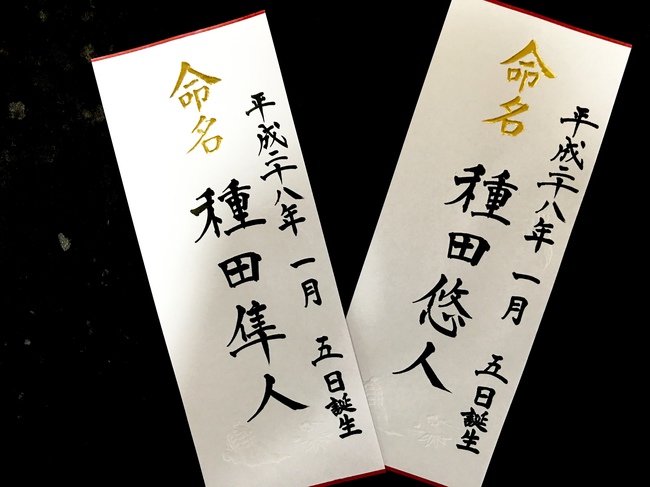 命名
平成二十八年 一月 五日誕生
種田隼人
命名
平成二十八年 一月 五日誕生
種田悠人